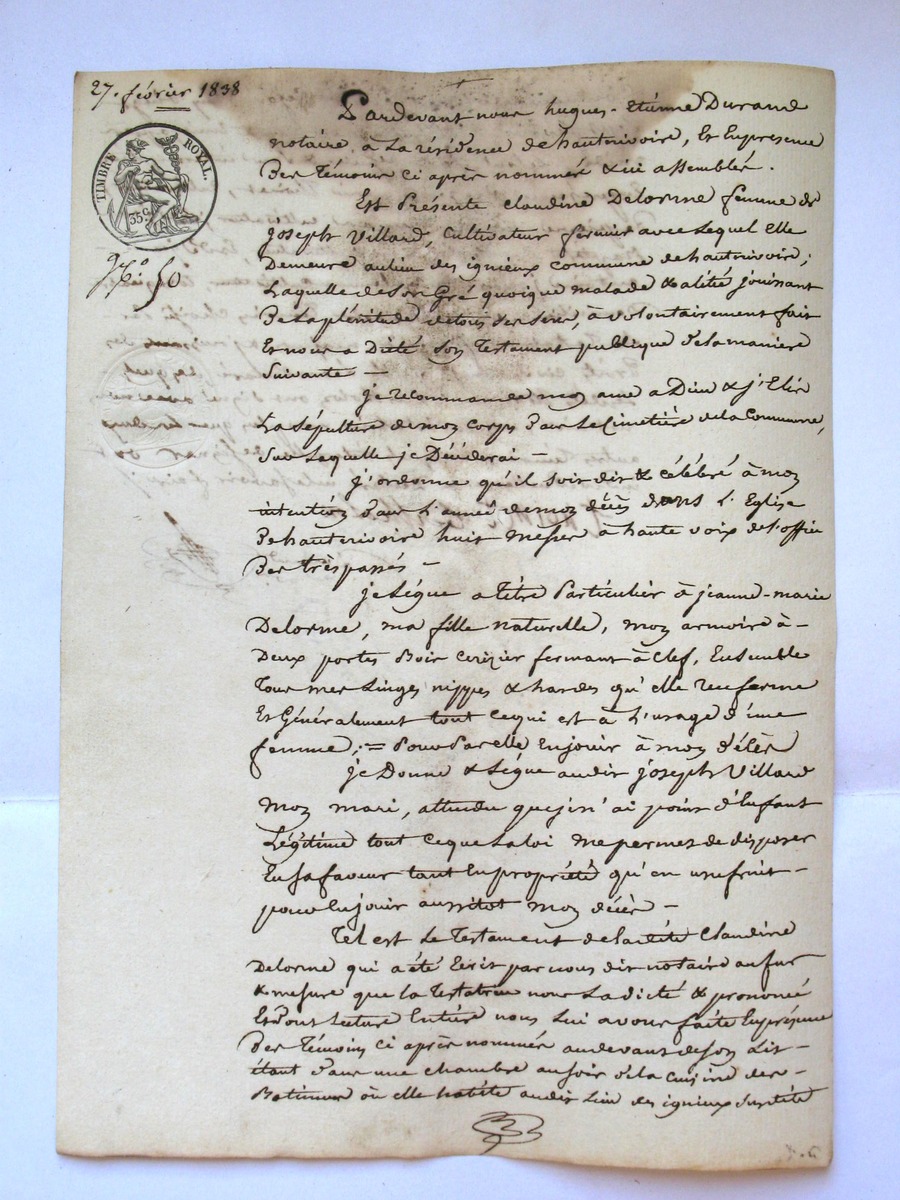 27. février 1838
TIMBRE ROYAL.
35 C.
50
Pardevant nous hugues-Etiénne Durand
notaire, à La résidence de hautrivoire, Et En presence
Des Témoins ci après nommés & ici assemblés.
Est Présente Claudine Delorme femme de
joseph Villard, Cultivateur fermier avec Lequel Elle
Demeure au lieu des ignieux commune de hautrivoire;
Laquelle de Son Gré quoique malade & alitée jouissant
De La plénitude de tous Ses Sens, à volontairement fait
Et nous a Dicté Son Testament publique de la maniere
Suivante —
je recommande mon ame a Dieu & j'Elis
La Sépulture de mon Corps Dans Le Cimetière de la Commune,
Sur Laquelle je Décéderai —
j'ordonne qu'il soit dit & célébré à mon
intention Dans L'année de mon décès dans L'Eglise
De hautrivoire huit messes à haute voix de l'office
Des trèspassés —
je Légue a tître Particulier à jeanne-marie
Delorme, ma fille naturelle, mon armoire à -
Deux portes Bois Cerizier fermant à Clef, Ensemble
Tous mes Linges nippes & hardes qu'elle renferme
Et Généralement tout ce qui est à L'usage d'une
femme; = Pour Par elle En jouir à mon décès
je Donne & Légue au dit joseph Villard
mon mari, attendu que je n'ai point d'Enfant
Légitime tout ce que La loi me permet de disposer
En Sa faveur tant En propriété qu'en usufruit —
pour En jouir aussitot mon décès —
Tel est Le Testament de la dite Claudine
Delorme qui a été Ecrit par nous dit notaire au fur
& mesure que la Testatrice nous La dicté & prononcé
Et Dont Lecture Entière nous Lui avons faite En présence
Des Témoins Ci après nommés au devant de Son Lit —
étant Dans une chambre au Soir de la Cuisine des —
Batimens où elle habite au dit Lieu des ignieux Susdite